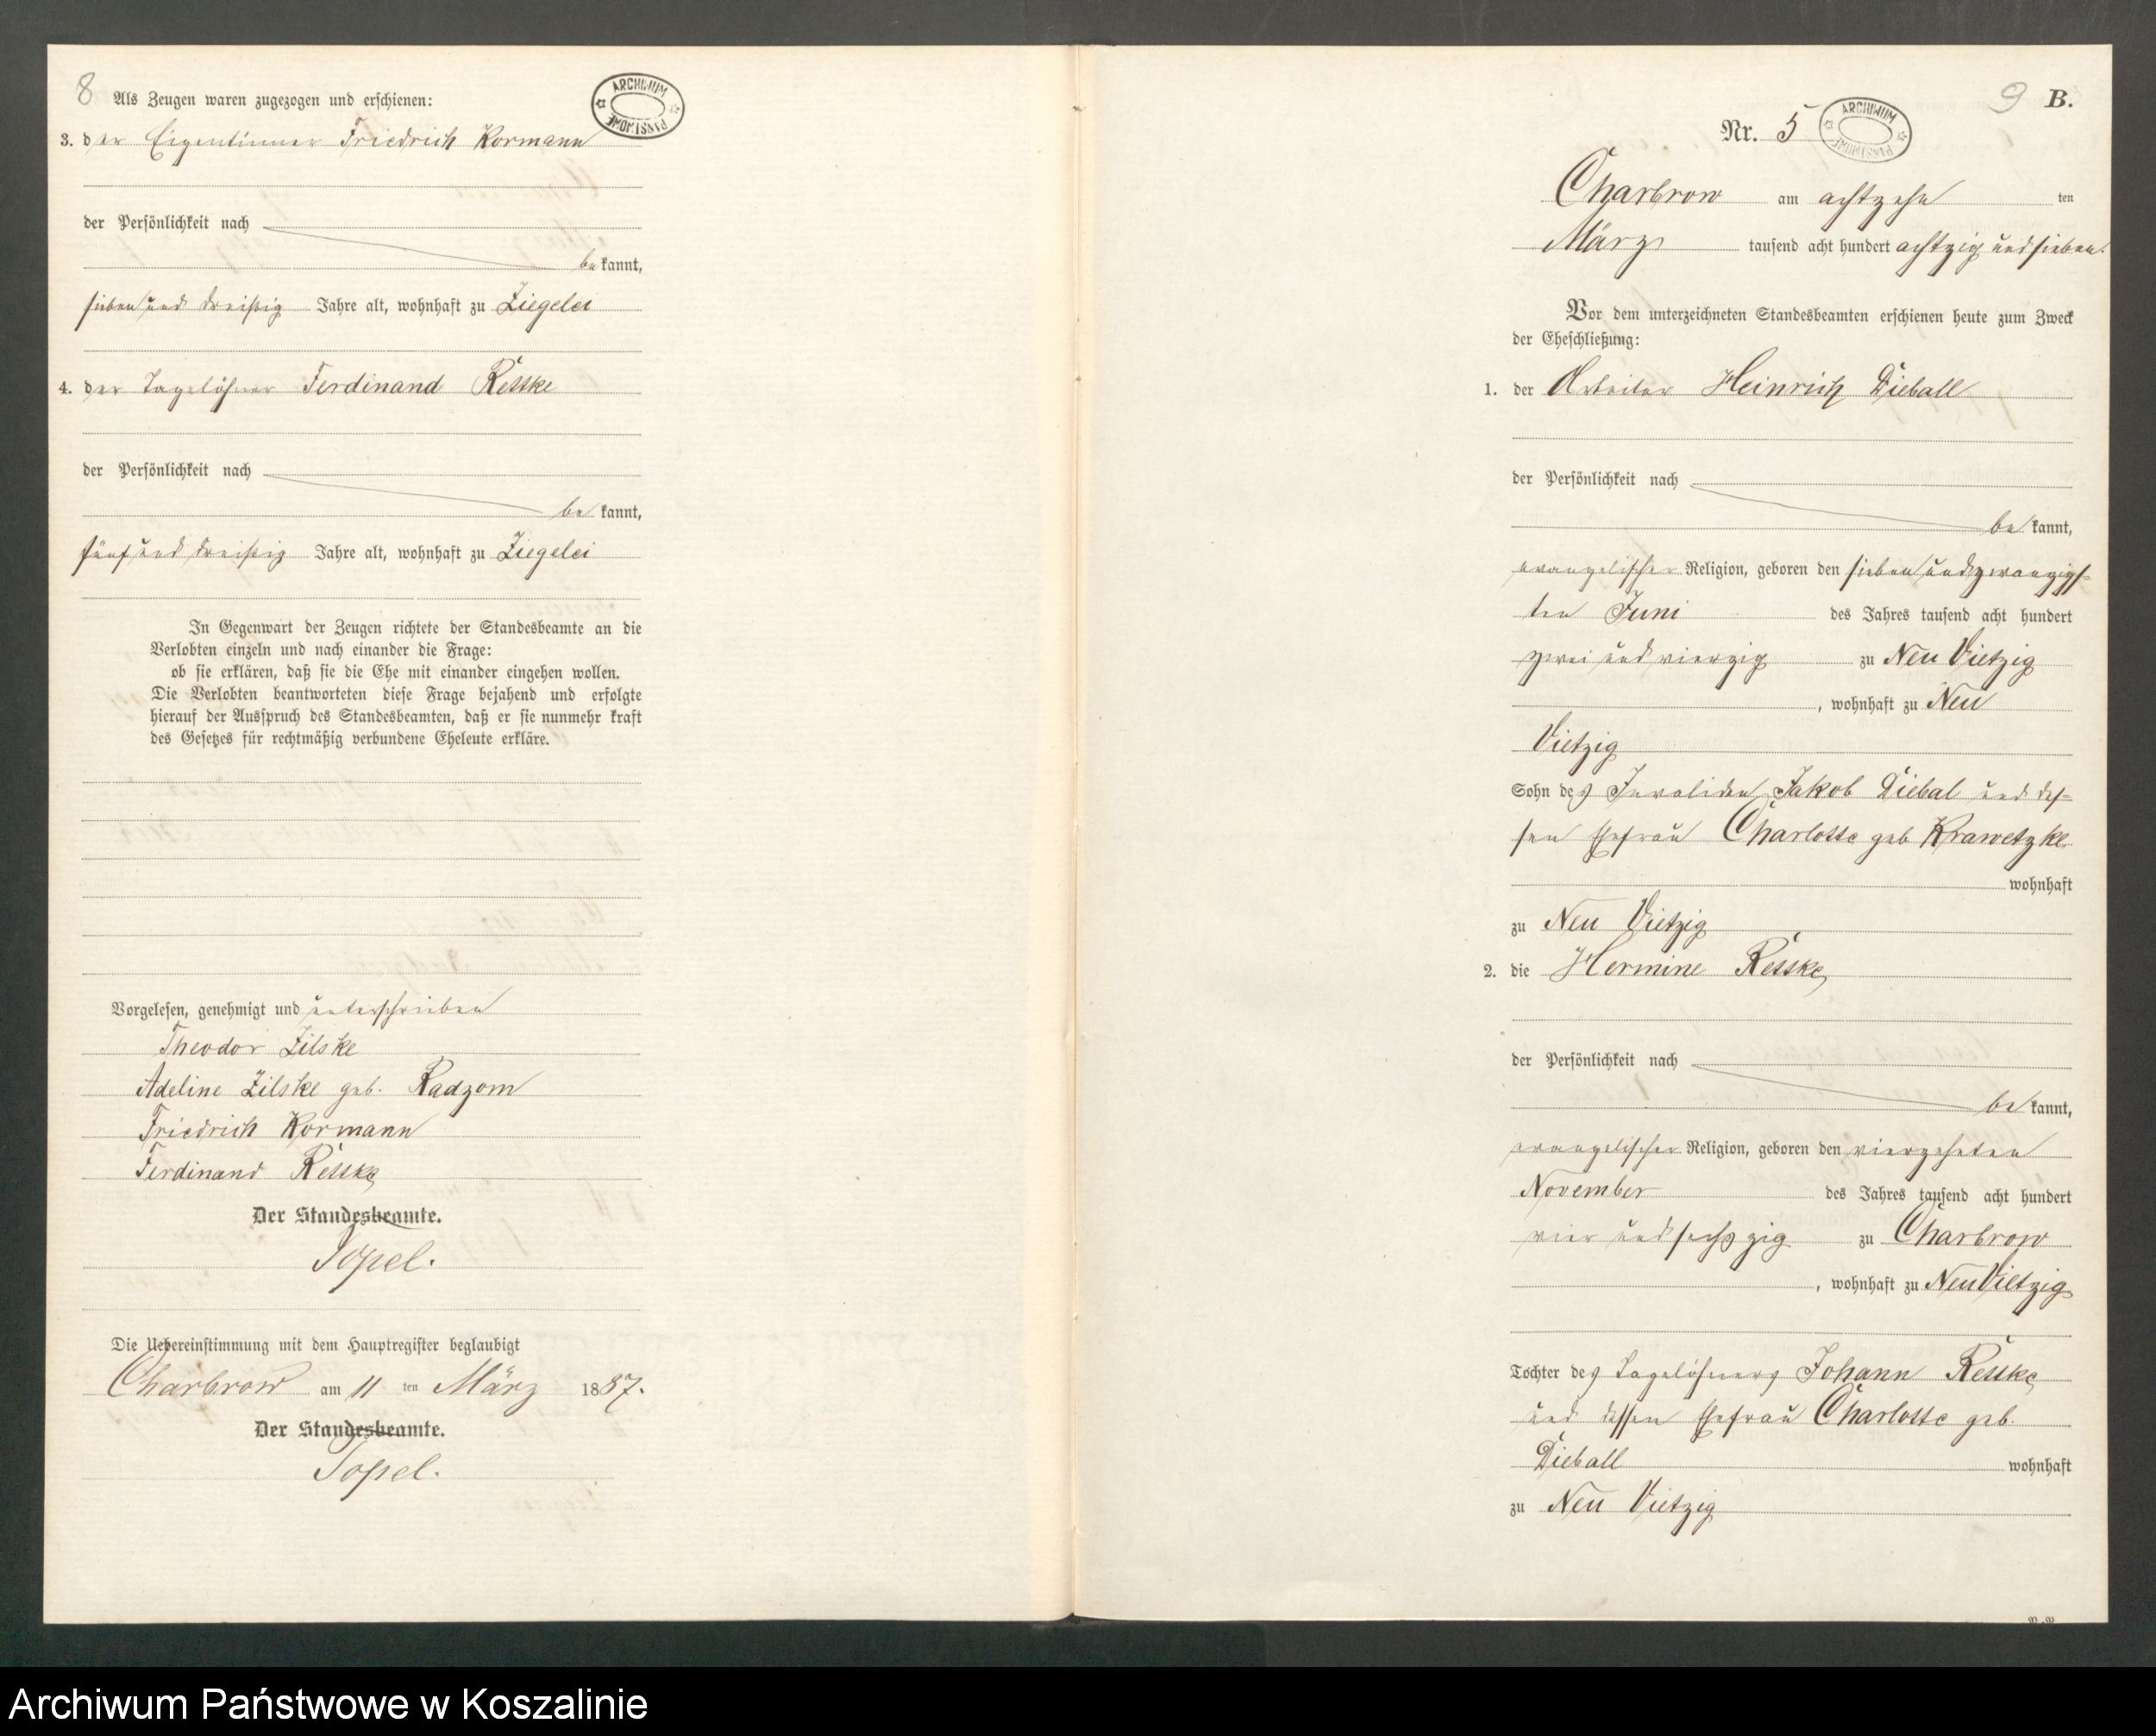 8
Als Zeugen waren zugezogen und erschienen:
ARCHIWUM PAŃSTWOWE
3. der Eigentümer Friedrich Kormann
der Persönlichkeit nach
bekannt,
sieben und dreißig Jahre alt, wohnhaft zu Ziegelei
4. der Tagelöhner Ferdinand Resske
der Persönlichkeit nach
bekannt,
fünf und dreißig Jahre alt, wohnhaft zu Ziegelei
In Gegenwart der Zeugen richtete der Standesbeamte an die
Verlobten einzeln und nach einander die Frage:
ob sie erklären, daß sie die Ehe mit einander eingehen wollen.
Die Verlobten beantworteten diese Frage bejahend und erfolgte
hierauf der Ausspruch des Standesbeamten, daß er sie nunmehr kraft
des Gesetzes für rechtmäßig verbundene Eheleute erkläre.
Vorgelesen, genehmigt und unterschrieben
Theodor Zilske
Adeline Zilske geb. Radzom
Friedrich Kormann
Ferdinand Resske
Der Standesbeamte.
Topel.
Die Uebereinstimmung mit dem Hauptregister beglaubigt
Charbrow am 11 ten März 1887.
Der Standesbeamte.
Topel.
9 B.
Nr. 5
ARCHIWUM PAŃSTWOWE
Charbrow am achtzehn ten
März tausend acht hundert achtzig und sieben.
Vor dem unterzeichneten Standesbeamten erschienen heute zum Zweck
der Eheschließung:
1. der Arbeiter Heinrich Dieball
der Persönlichkeit nach
bekannt,
evangelischer Religion, geboren den sieben und zwanzigs-
ten Juni des Jahres tausend acht hundert
zwei und vierzig zu Neu Vietzig
, wohnhaft zu Neu
Vietzig
Sohn des Invaliden Jakob Diebal und des-
sen Ehefrau Charlotte geb Krawetzke
wohnhaft
zu Neu Vietzig
2. die Hermine Resske,
der Persönlichkeit nach
bekannt,
evangelischer Religion, geboren den vierzehnten
November des Jahres tausend acht hundert
vier und sechszig zu Charbrow
, wohnhaft zu Neu Vietzig
Tochter des Tagelöhners Johann Resske,
und dessen Ehefrau Charlotte geb.
Dieball wohnhaft
zu Neu Vietzig
Archiwum Państwowe w Koszalinie